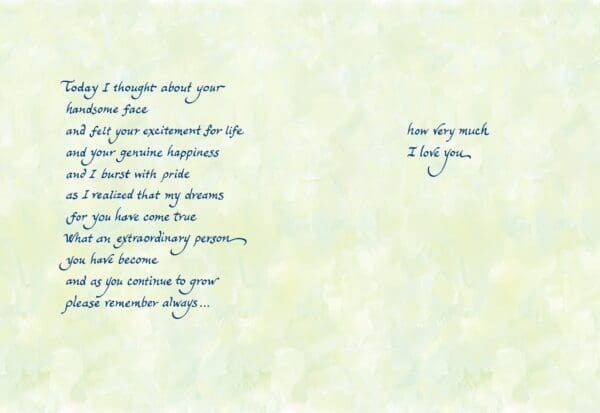 Today I thought about your
handsome face
and felt your excitement for life
and your genuine happiness
and I burst with pride
as I realized that my dreams
for you have come true
What an extraordinary person
you have become
and as you continue to grow
please remember always...
how very much
I love you